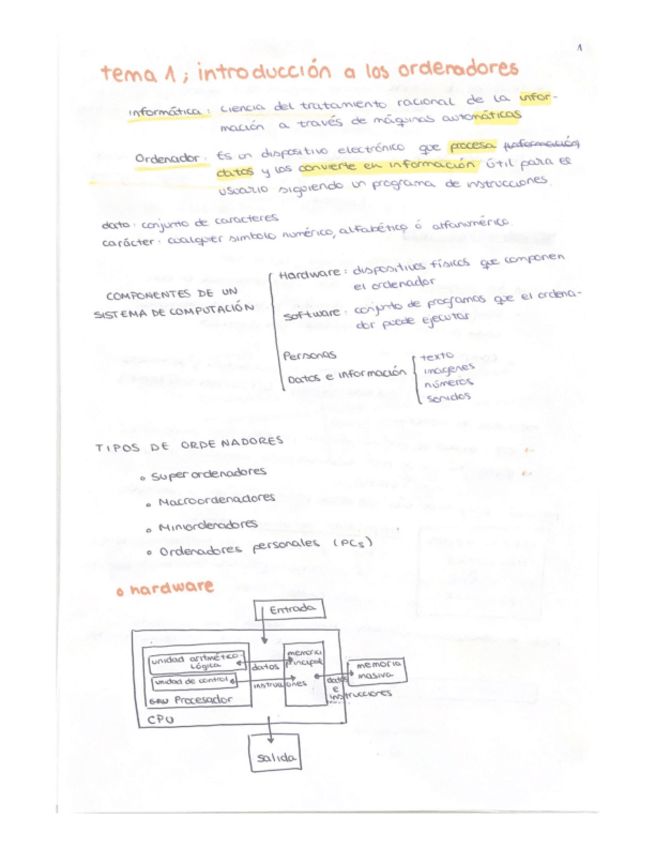 1
tema 1; introducción a los ordenadores
informática: ciencia del tratamiento racional de la infor-
mación a través de máquinas automáticas
Ordenador: Es un dispositivo electrónico que procesa
datos y los convierte en información útil para el
usuario siguiendo un programa de instrucciones.
dato: conjunto de caracteres
carácter: cualquier símbolo numérico, alfabético ó alfanumérico.
COMPONENTES DE UN
SISTEMA DE COMPUTACIÓN
Hardware: dispositivos físicos que componen
el ordenador
Software: conjunto de programas que el ordena-
dor puede ejecutar
Personas
Datos e información
texto
imágenes
números
sonidos
TIPOS DE ORDENADORES
Superordenadores
Macroordenadores
Miniordenadores
Ordenadores personales (PCs)
hardware
Entrada
unidad aritmético-
lógica
unidad de control
Procesador
CPU
datos
instrucciones
memoria
principal
datos
e
instrucciones
memoria
masiva
Salida